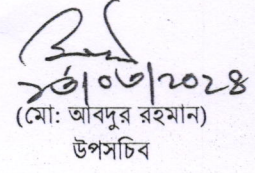 /০৩/২০২৪
(মো: আবদুর রহমান)
উপসচিব